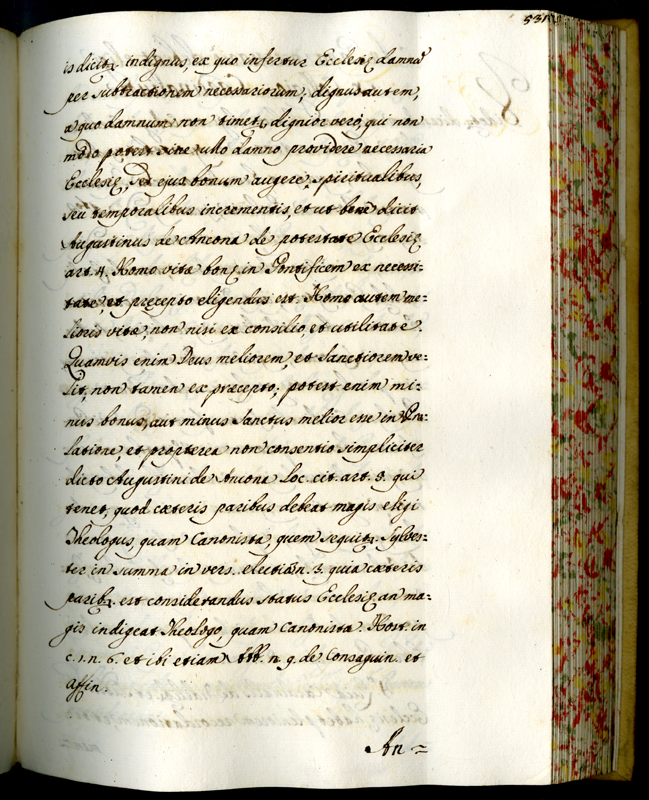 531
is dicitꝝ indignus, ex quo infertur Ecclesiæ damnũ
per subtractionem necessariorum, dignus autem,
a quo damnum non timetꝝ, dignior verò, qui non
modo potest sine ullo damno providere necessaria
Ecclesiæ, sed ejus bonum augere spiritualibus,
seu temporalibus incrementis, et ut bene dicit
Augustinus de Ancona de potestate Ecclesiæ
art. 4. Homo vitæ bonæ in Pontificem ex necessi:
tate, et præcepto eligendus est. Homo autem me:
lioris vitæ, non nisi ex consilio, et utilitate.
Quamvis enim Deus meliorem, et Sanctiorem ve:
lit, non tamen ex præcepto; potest enim mi:
nus bonus, aut minus Sanctus melior esse in Præ:
latione, et propterea non consentio simpliciter
dicto Augustini de Ancona Loc. cit. art. 3. qui
tenet, quod cæteris paribus debeat magis eligi
Theologus, quam Canonista, quem sequitꝝ Sylves:
ter in summa in vers. electio n. 3. quia cæteris
paribꝫ est considerandus status Ecclesiæ an ma:
gis indigeat Theologo, quam Canonista. Host. in
c. 1. n. 6. et ibi etiam n. 9. de Consaguin. et
affin.
An =